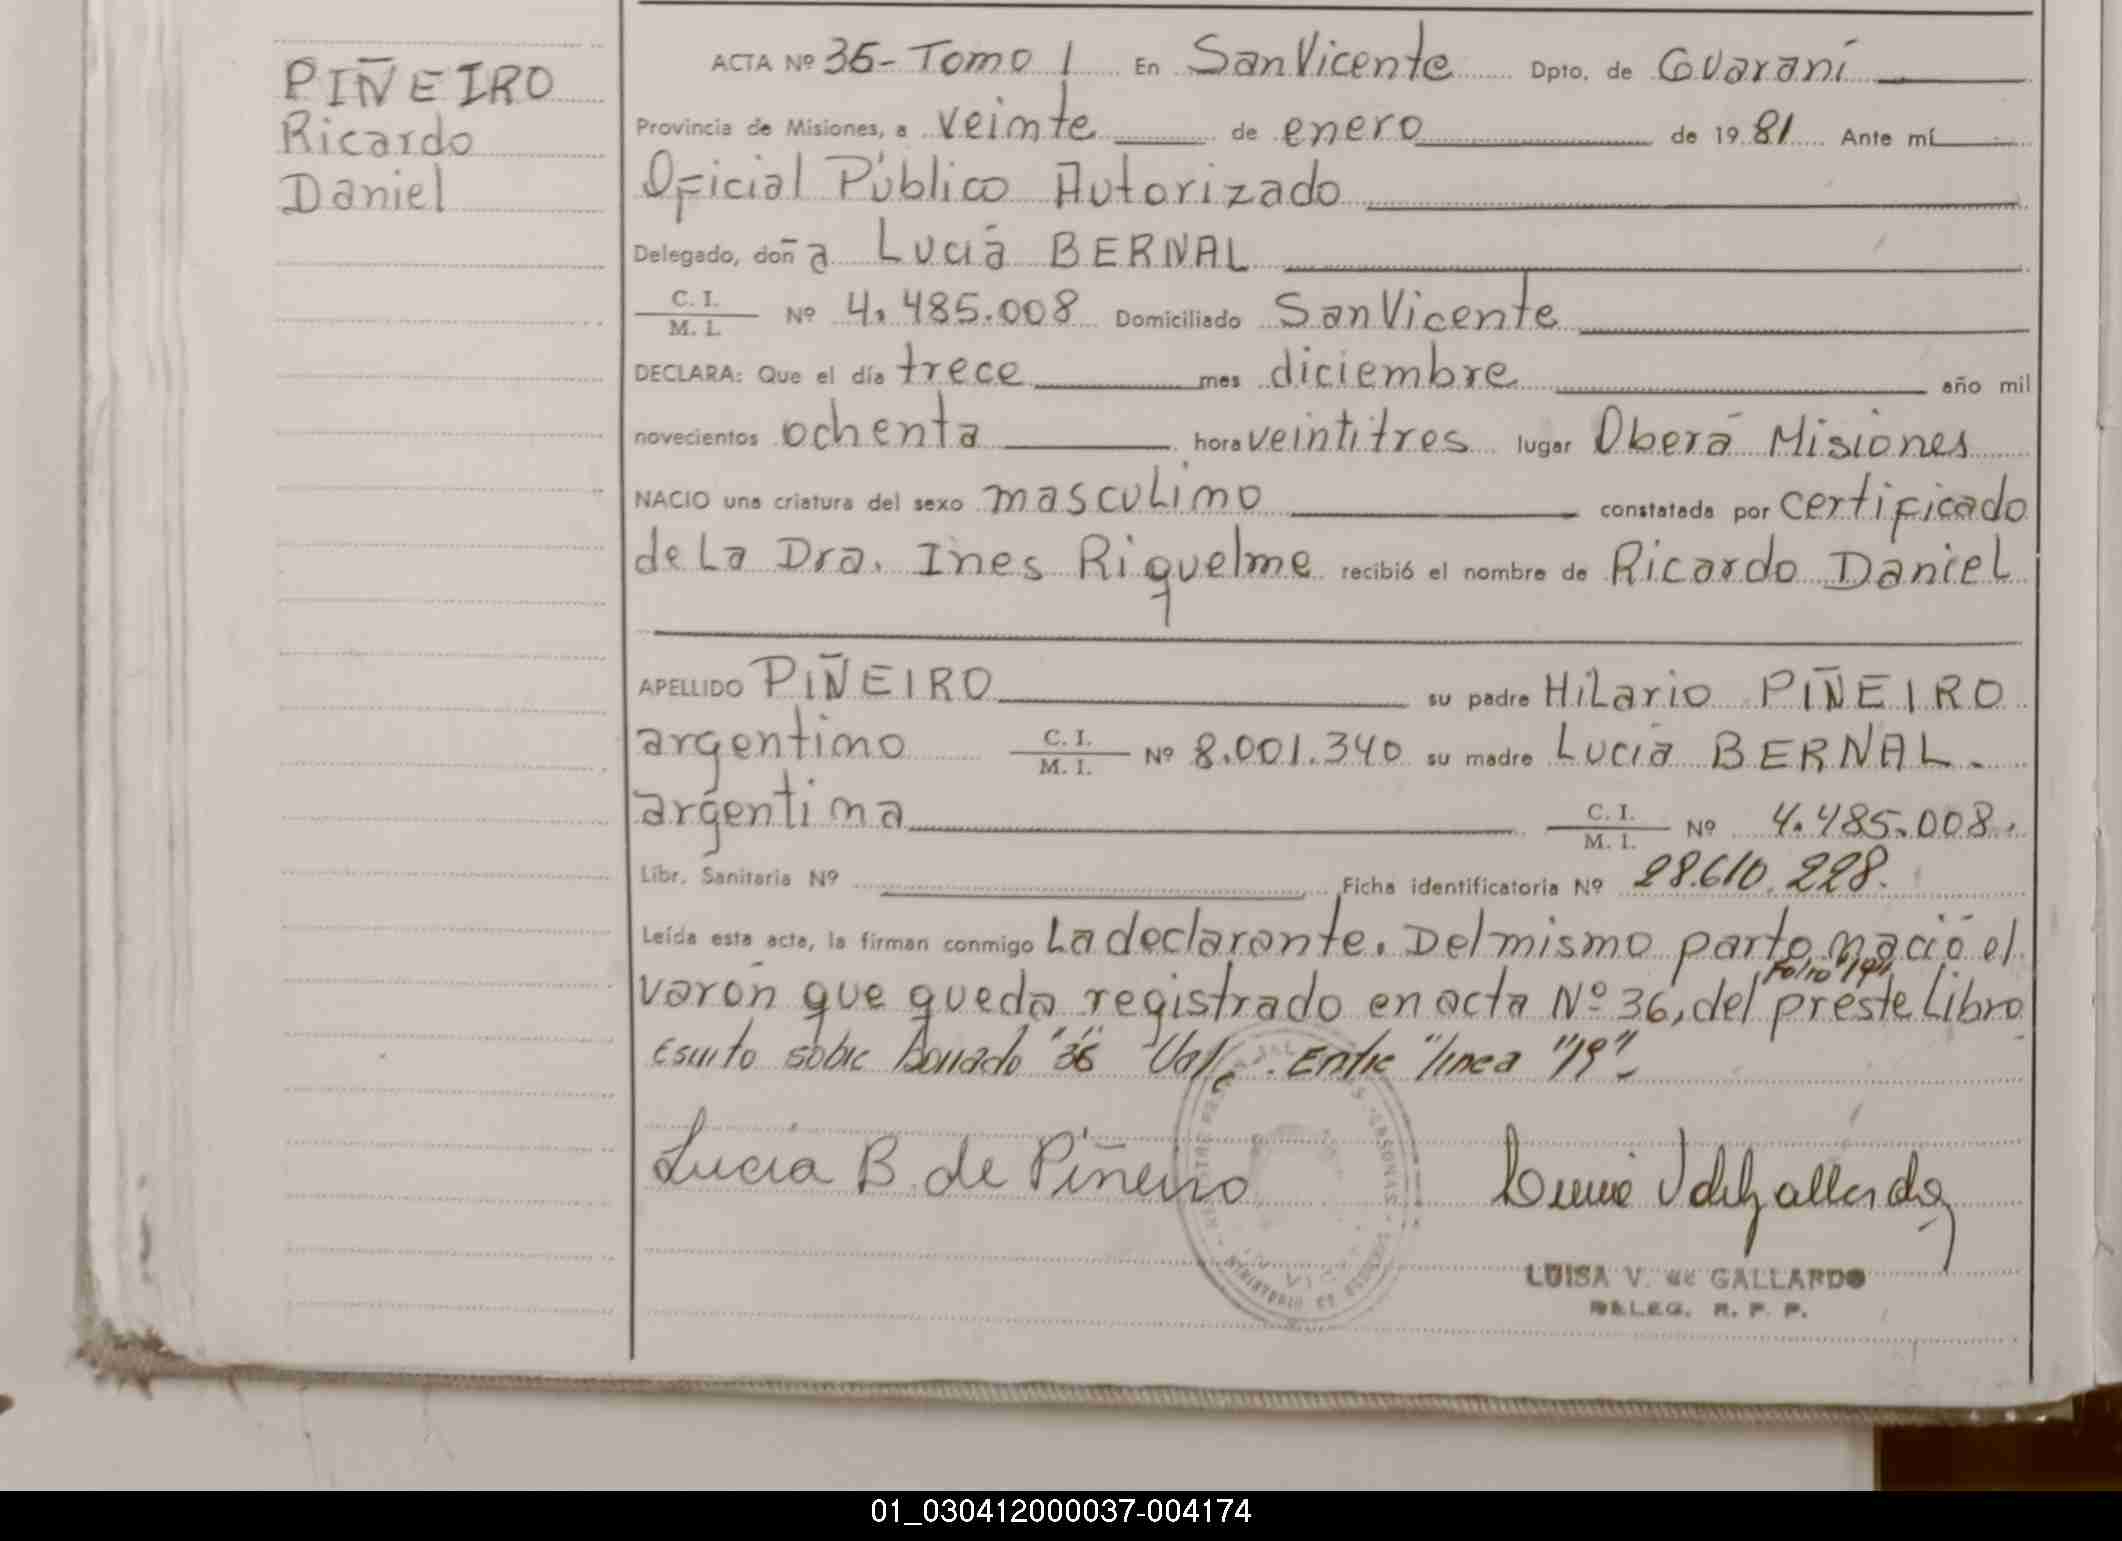 PIÑEIRO
Ricardo
Daniel
ACTA Nº 35- Tomo I En San Vicente Dpto. de Guaraní
Provincia de Misiones, a veinte de enero de 1981 Ante mí
Oficial Público Autorizado
Delegado, doña Lucía BERNAL
C. I.
M. I. Nº 4.485.008 Domiciliado San Vicente
DECLARA: Que el día trece mes diciembre año mil
novecientos ochenta hora veintitres lugar Oberá Misiones
NACIO una criatura del sexo masculino constatada por certificado
de La Dra. Ines Riquelme recibió el nombre de Ricardo Daniel
APELLIDO PIÑEIRO su padre Hilario PIÑEIRO
argentino C. I.
M. I. Nº 8.001.340 su madre Lucía BERNAL.
argentina C. I.
M. I. Nº 4.485.008.
Libr. Sanitaria Nº Ficha identificatoria Nº 28.610.228.
Leída esta acta, la firman conmigo La declarante. Del mismo parto nació el
Folio "19"
varón que queda registrado en acta Nº 36, del preste Libro
Escrito sobre borrado "36" Vale. Entre "linea "19"-
Lucía B. de Piñeiro
LUISA V. de GALLARDO
DELEG. R. P. P.
01_030412000037-004174